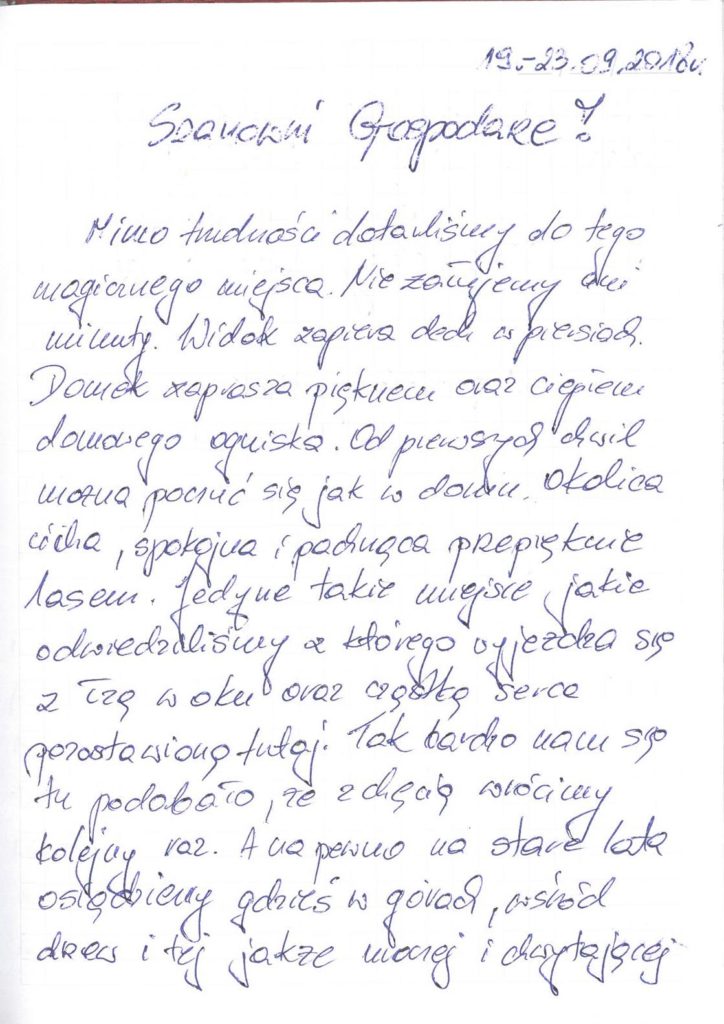 19.-23.09.2018r.
Szanowni Gospodarze!
Mimo trudności dotarliśmy do tego
magicznego miejsca. Nie żałujemy ani
minuty. Widok zapiera dech w piersiach.
Domek zaprasza pięknem oraz ciepłem
domowego ogniska. Od pierwszych chwil
można poczuć się jak w domu. Okolica
cicha, spokojna i pachnąca przepięknie
lasem. Jedyne takie miejsce jakie
odwiedziliśmy z którego wyjeżdża się
z łzą w oku oraz cząstką serca
pozostawioną tutaj. Tak bardzo nam się
tu podobało, że z chęcią wrócimy
kolejny raz. A na pewno na stare lata
osiądziemy gdzieś w górach, wśród
drzew i tej jakże mocnej i chwytającej